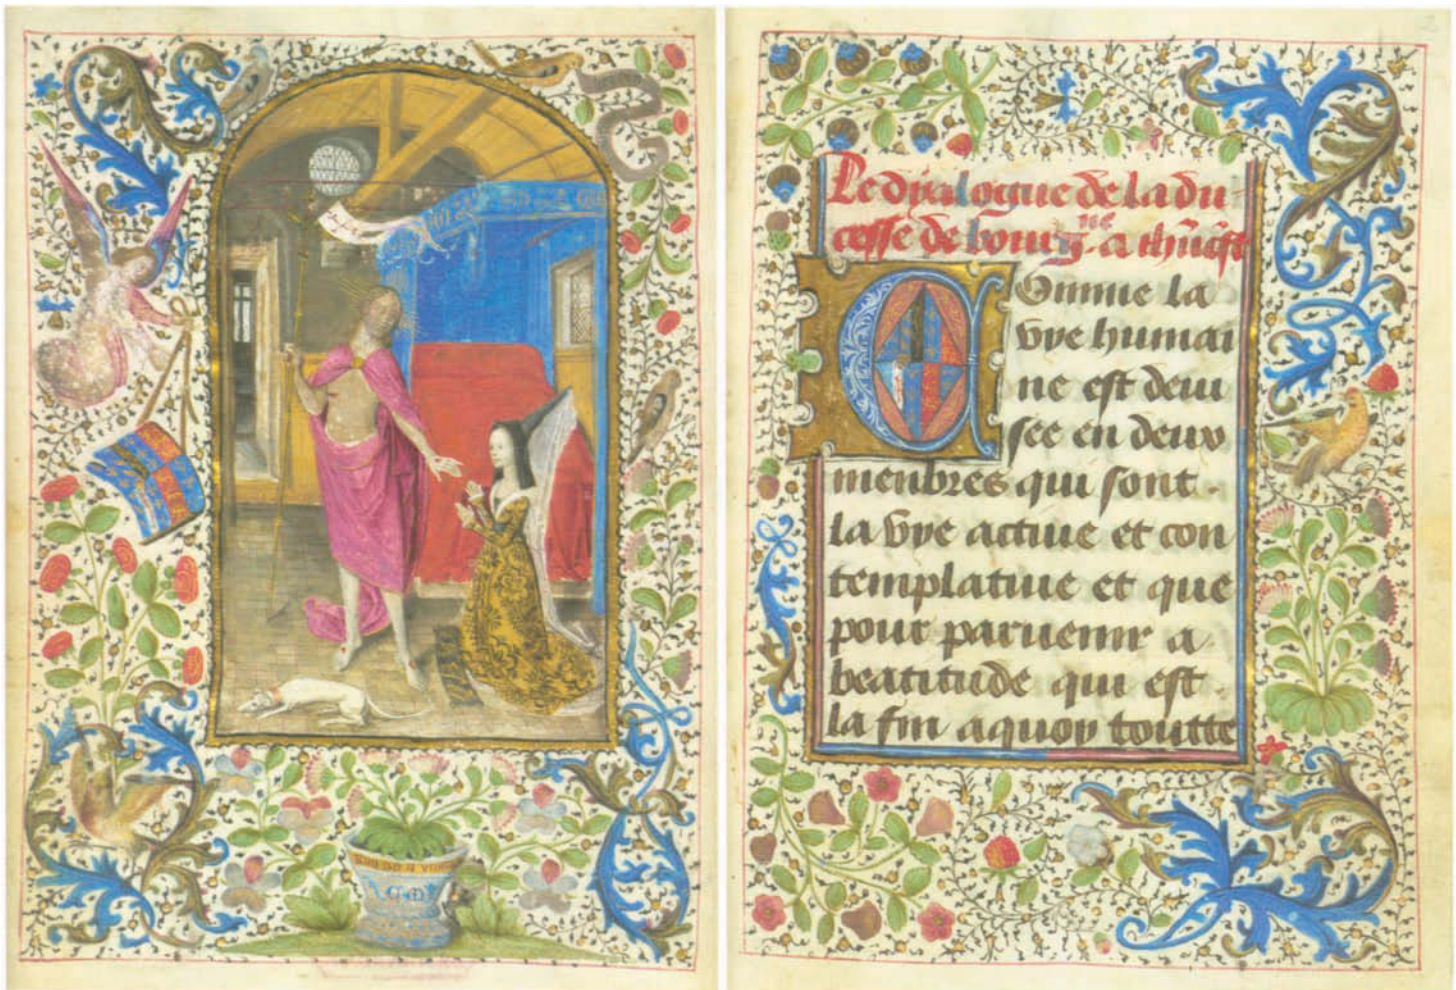 C M
Le dyalogue de la du
cesse de bourgne a ihūcrist
Comme la
vye humai
ne est deui
see en deux
menbres qui sont
la vye actiue et con
templatiue et que
pour paruenir a
beatitude qui est
la fin a quoy toutte